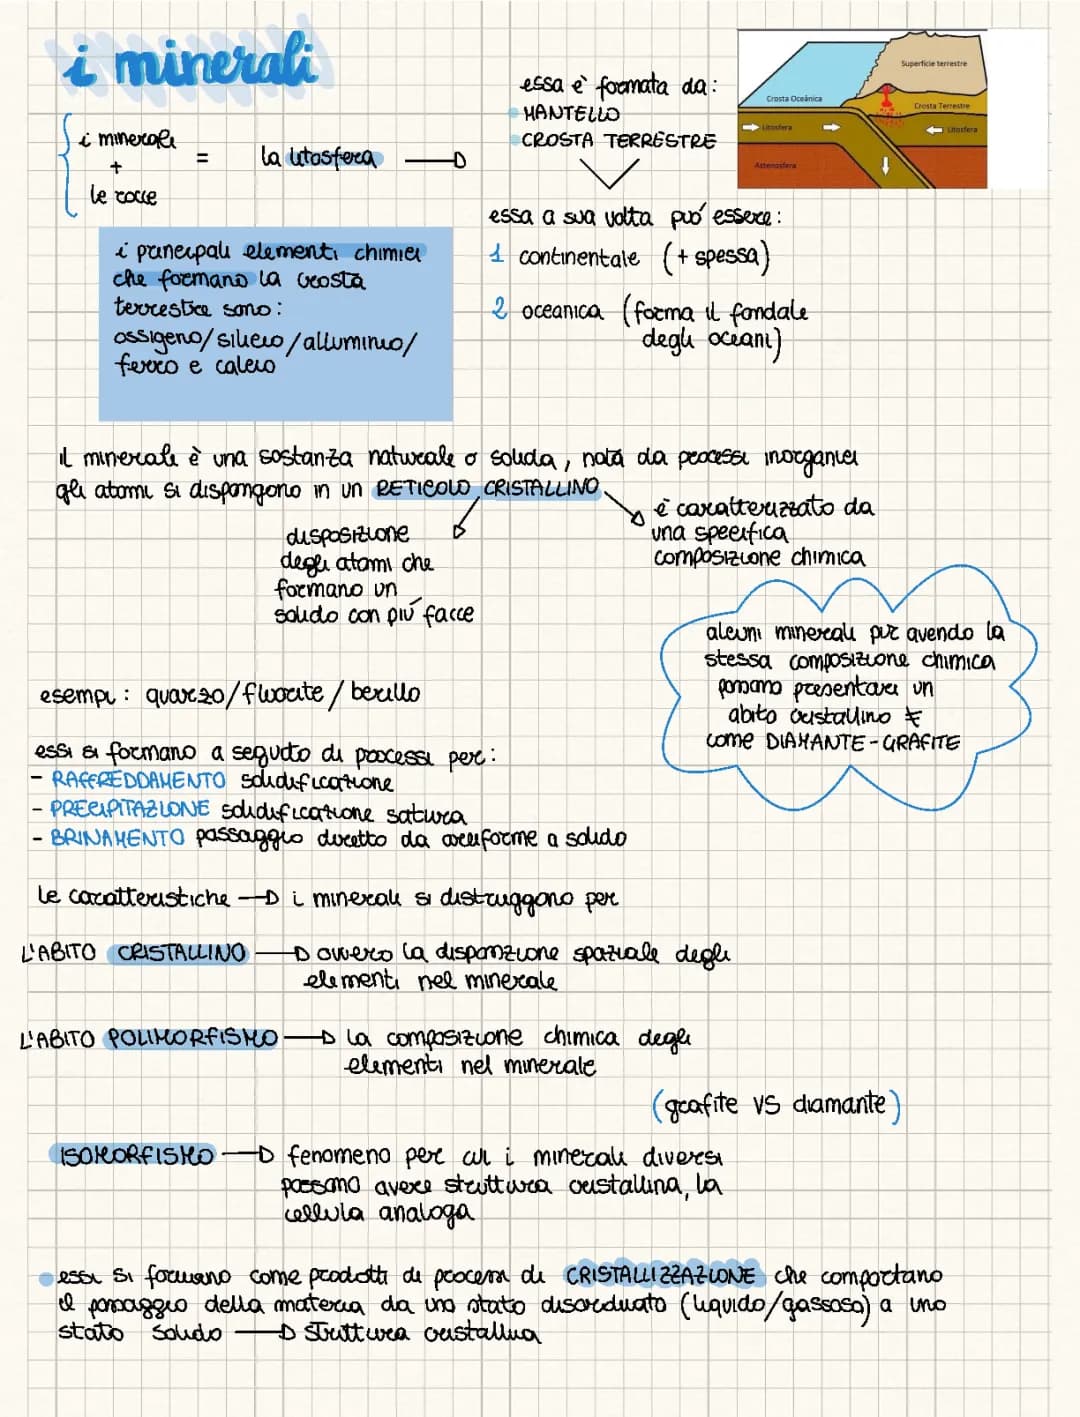 i minerali
i minerali
+
le rocce
=
la litosfera
essa è formata da:
MANTELLO
CROSTA TERRESTRE
Superficie terrestre
Crosta Oceánica
Crosta Terrestre
Litosfera
Litosfera
Astenosfera
essa a sua volta può essere:
1 continentale (+ spessa)
2 oceanica (forma il fondale
degli oceani)
i principali elementi chimici
che formano la crosta
terrestre sono:
ossigeno/silicio/alluminio/
ferro e calcio
il minerale è una sostanza naturale o solida, nata da processi inorganici
gli atomi si dispongono in un RETICOLO CRISTALLINO
disposizione
degli atomi che
formano un
solido con più facce
è caratterizzato da
una specifica
composizione chimica
alcuni minerali pur avendo la
stessa composizione chimica
possono presentare un
abito cristallino ≠
come DIAMANTE-GRAFITE
esempi: quarzo/fluorite/berillo
essi si formano a seguito di processi per:
- RAFFREDDAMENTO solidificazione
- PRECIPITAZIONE solidificazione satura
- BRINAMENTO passaggio diretto da aeriforme a solido
le caratteristiche → i minerali si distruggono per
L'ABITO CRISTALLINO → ovvero la disposizione spaziale degli
elementi nel minerale
L'ABITO POLIMORFISMO → la composizione chimica degli
elementi nel minerale
(grafite VS diamante)
ISOMORFISMO → fenomeno per cui i minerali diversi
possono avere struttura cristallina, la
cellula analoga
essi si formano come prodotti di processi di CRISTALLIZZAZIONE che comportano
il passaggio della materia da uno stato disordinato (liquido/gassoso) a uno
stato solido → struttura cristallina